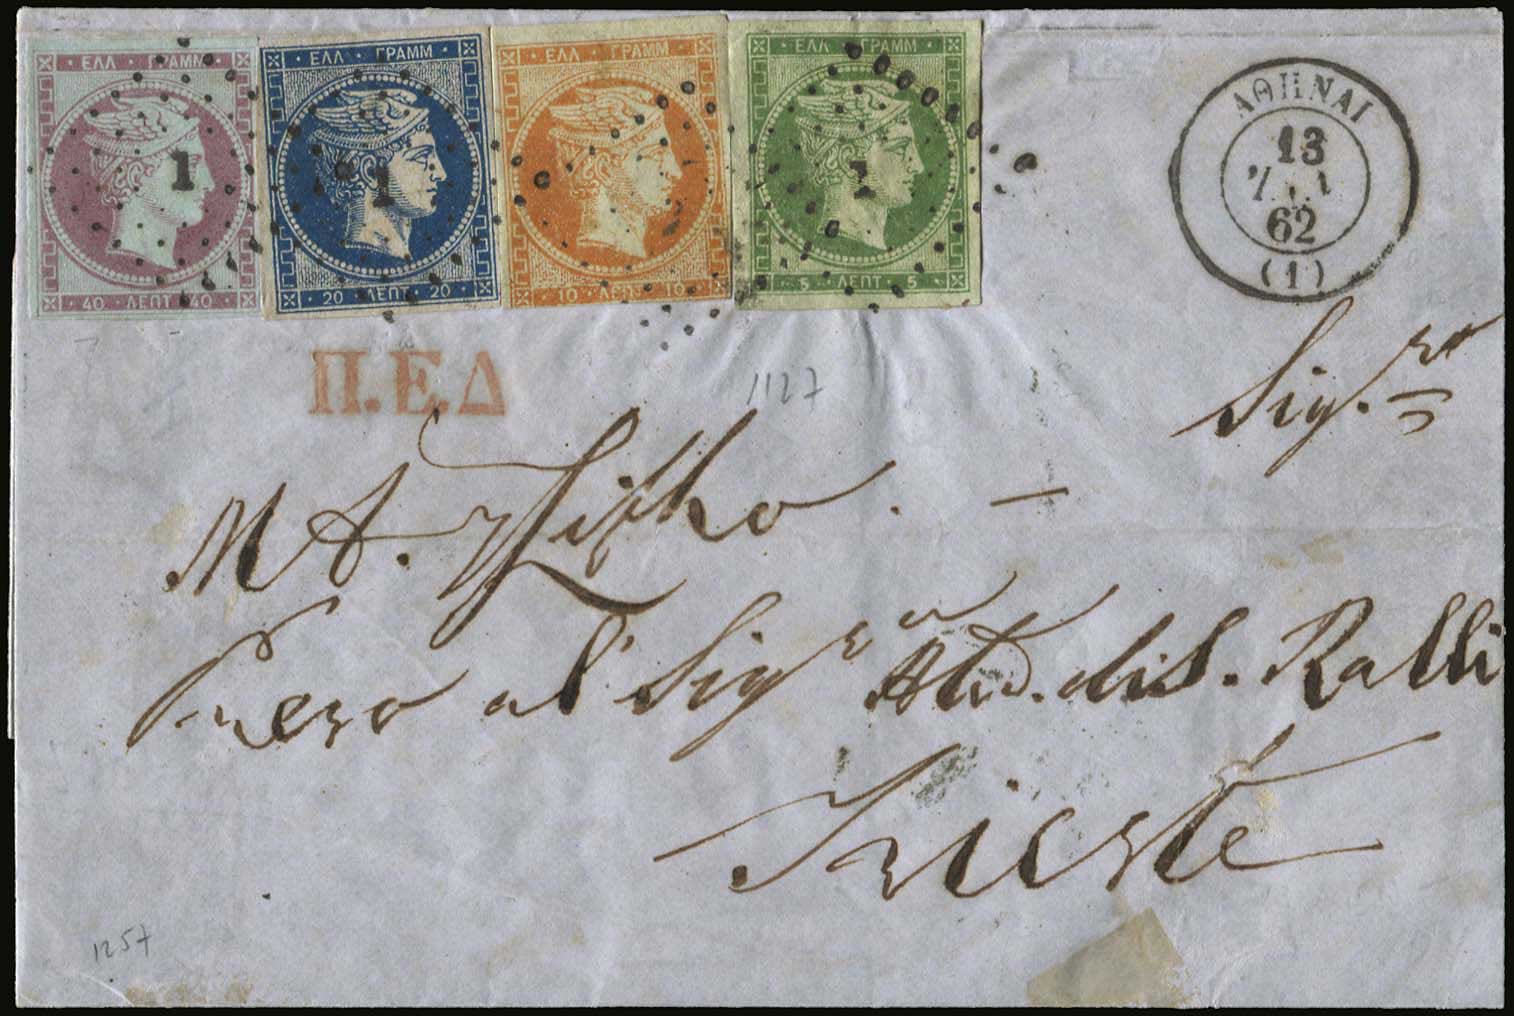 ΕΛΛ · ΓΡΑΜΜ ·
40 · ΛΕΠΤ · 40
1
ΕΛΛ · ΓΡΑΜΜ ·
20 · ΛΕΠΤ · 20
1
ΕΛΛ · ΓΡΑΜΜ
10 · ΛΕΠΤ · 10
ΕΛΛ · ΓΡΑΜΜ ·
5 · ΛΕΠΤ · 5
1
ΑΘΗΝΑΙ
13
62
(1)
Π.Ε.Δ
1127
Sig.re
M A.
al Sigre di S. Ralli
Trieste
1257